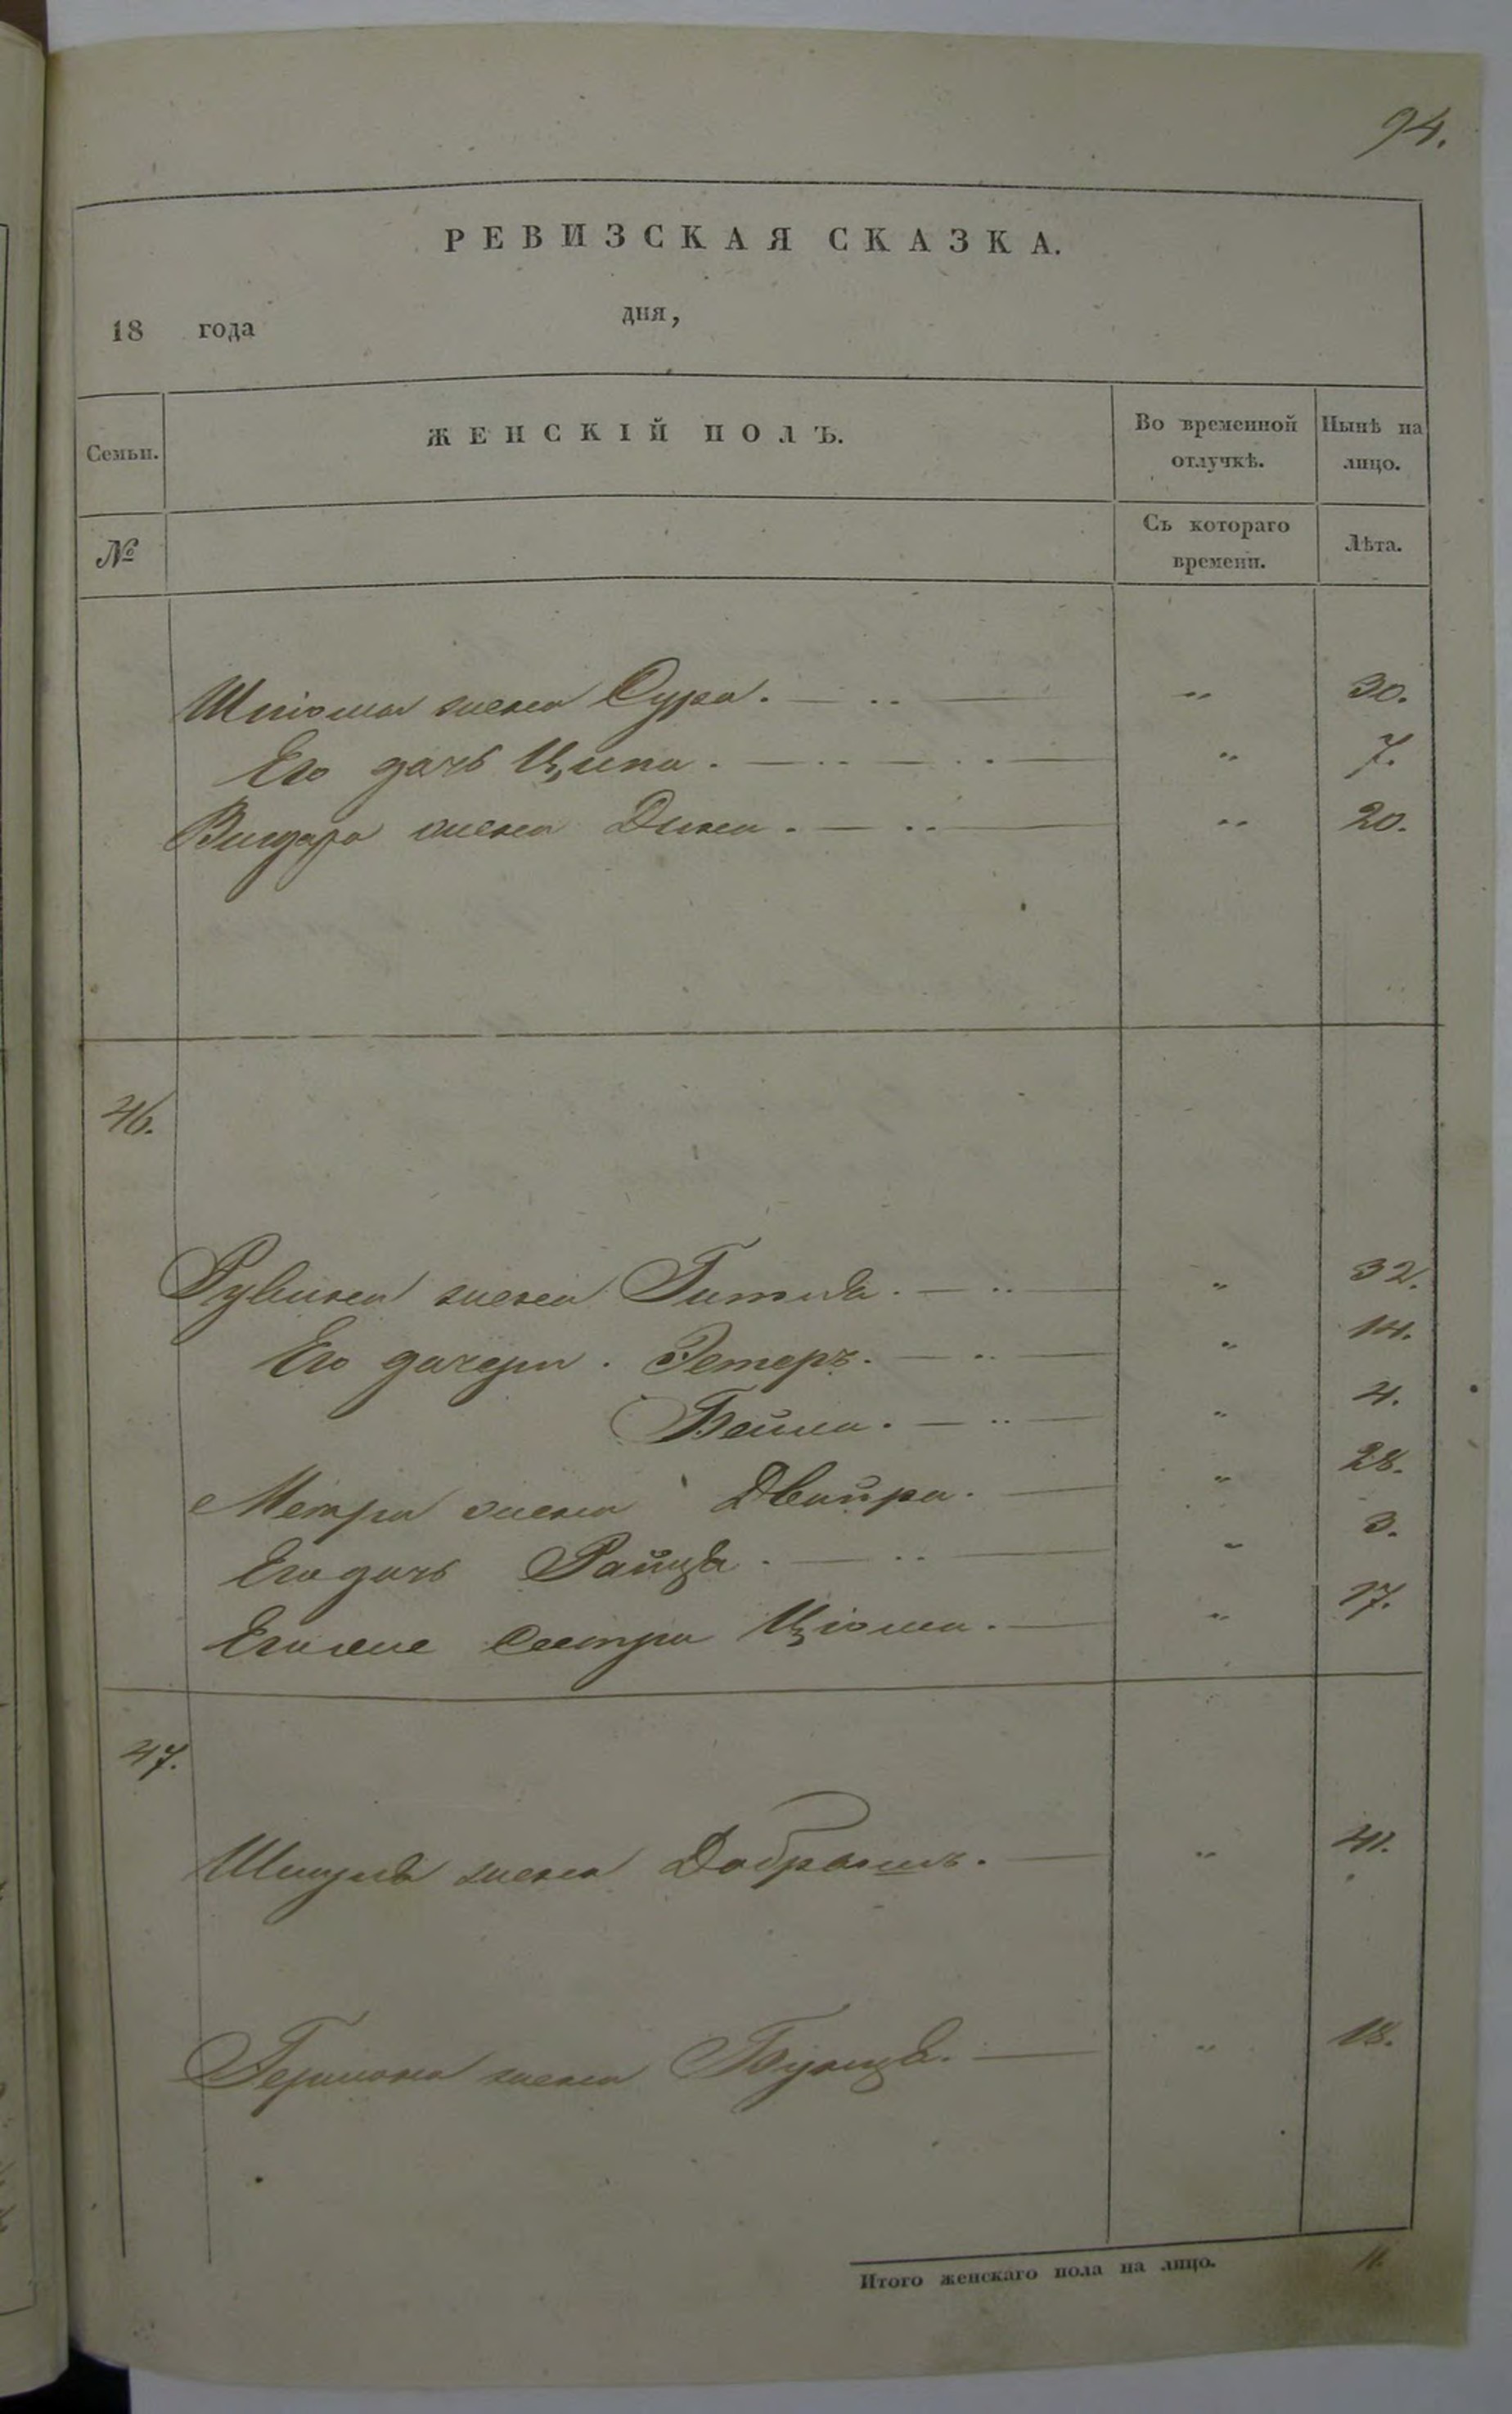 94.
РЕВИЗСКАЯ СКАЗКА.
18 года дня,
Семьи. ЖЕНСКІЙ ПОЛЪ. Во временной отлучкѣ. Нынѣ на лицо.
№ Съ котораго времени. Лѣта.
Шліома жена Сура. — .. — " 30.
Его дочь Ципа. — .. — .. — " 7.
Вигдара жена Дина. — .. — " 20.
46.
Рувина жена Гитля. — .. — " 32.
Его дочери. Эстеръ. — .. — " 14.
Бейла. — .. — " 4.
жена Двойра. — " 28.
Его дочь Райца. — .. — " 3.
Его же сестра Ціома. — " 17.
47.
жена Добрышъ. — " 41.
Гершона жена Бунця. — " 18.
Итого женскаго пола на лицо. 11.